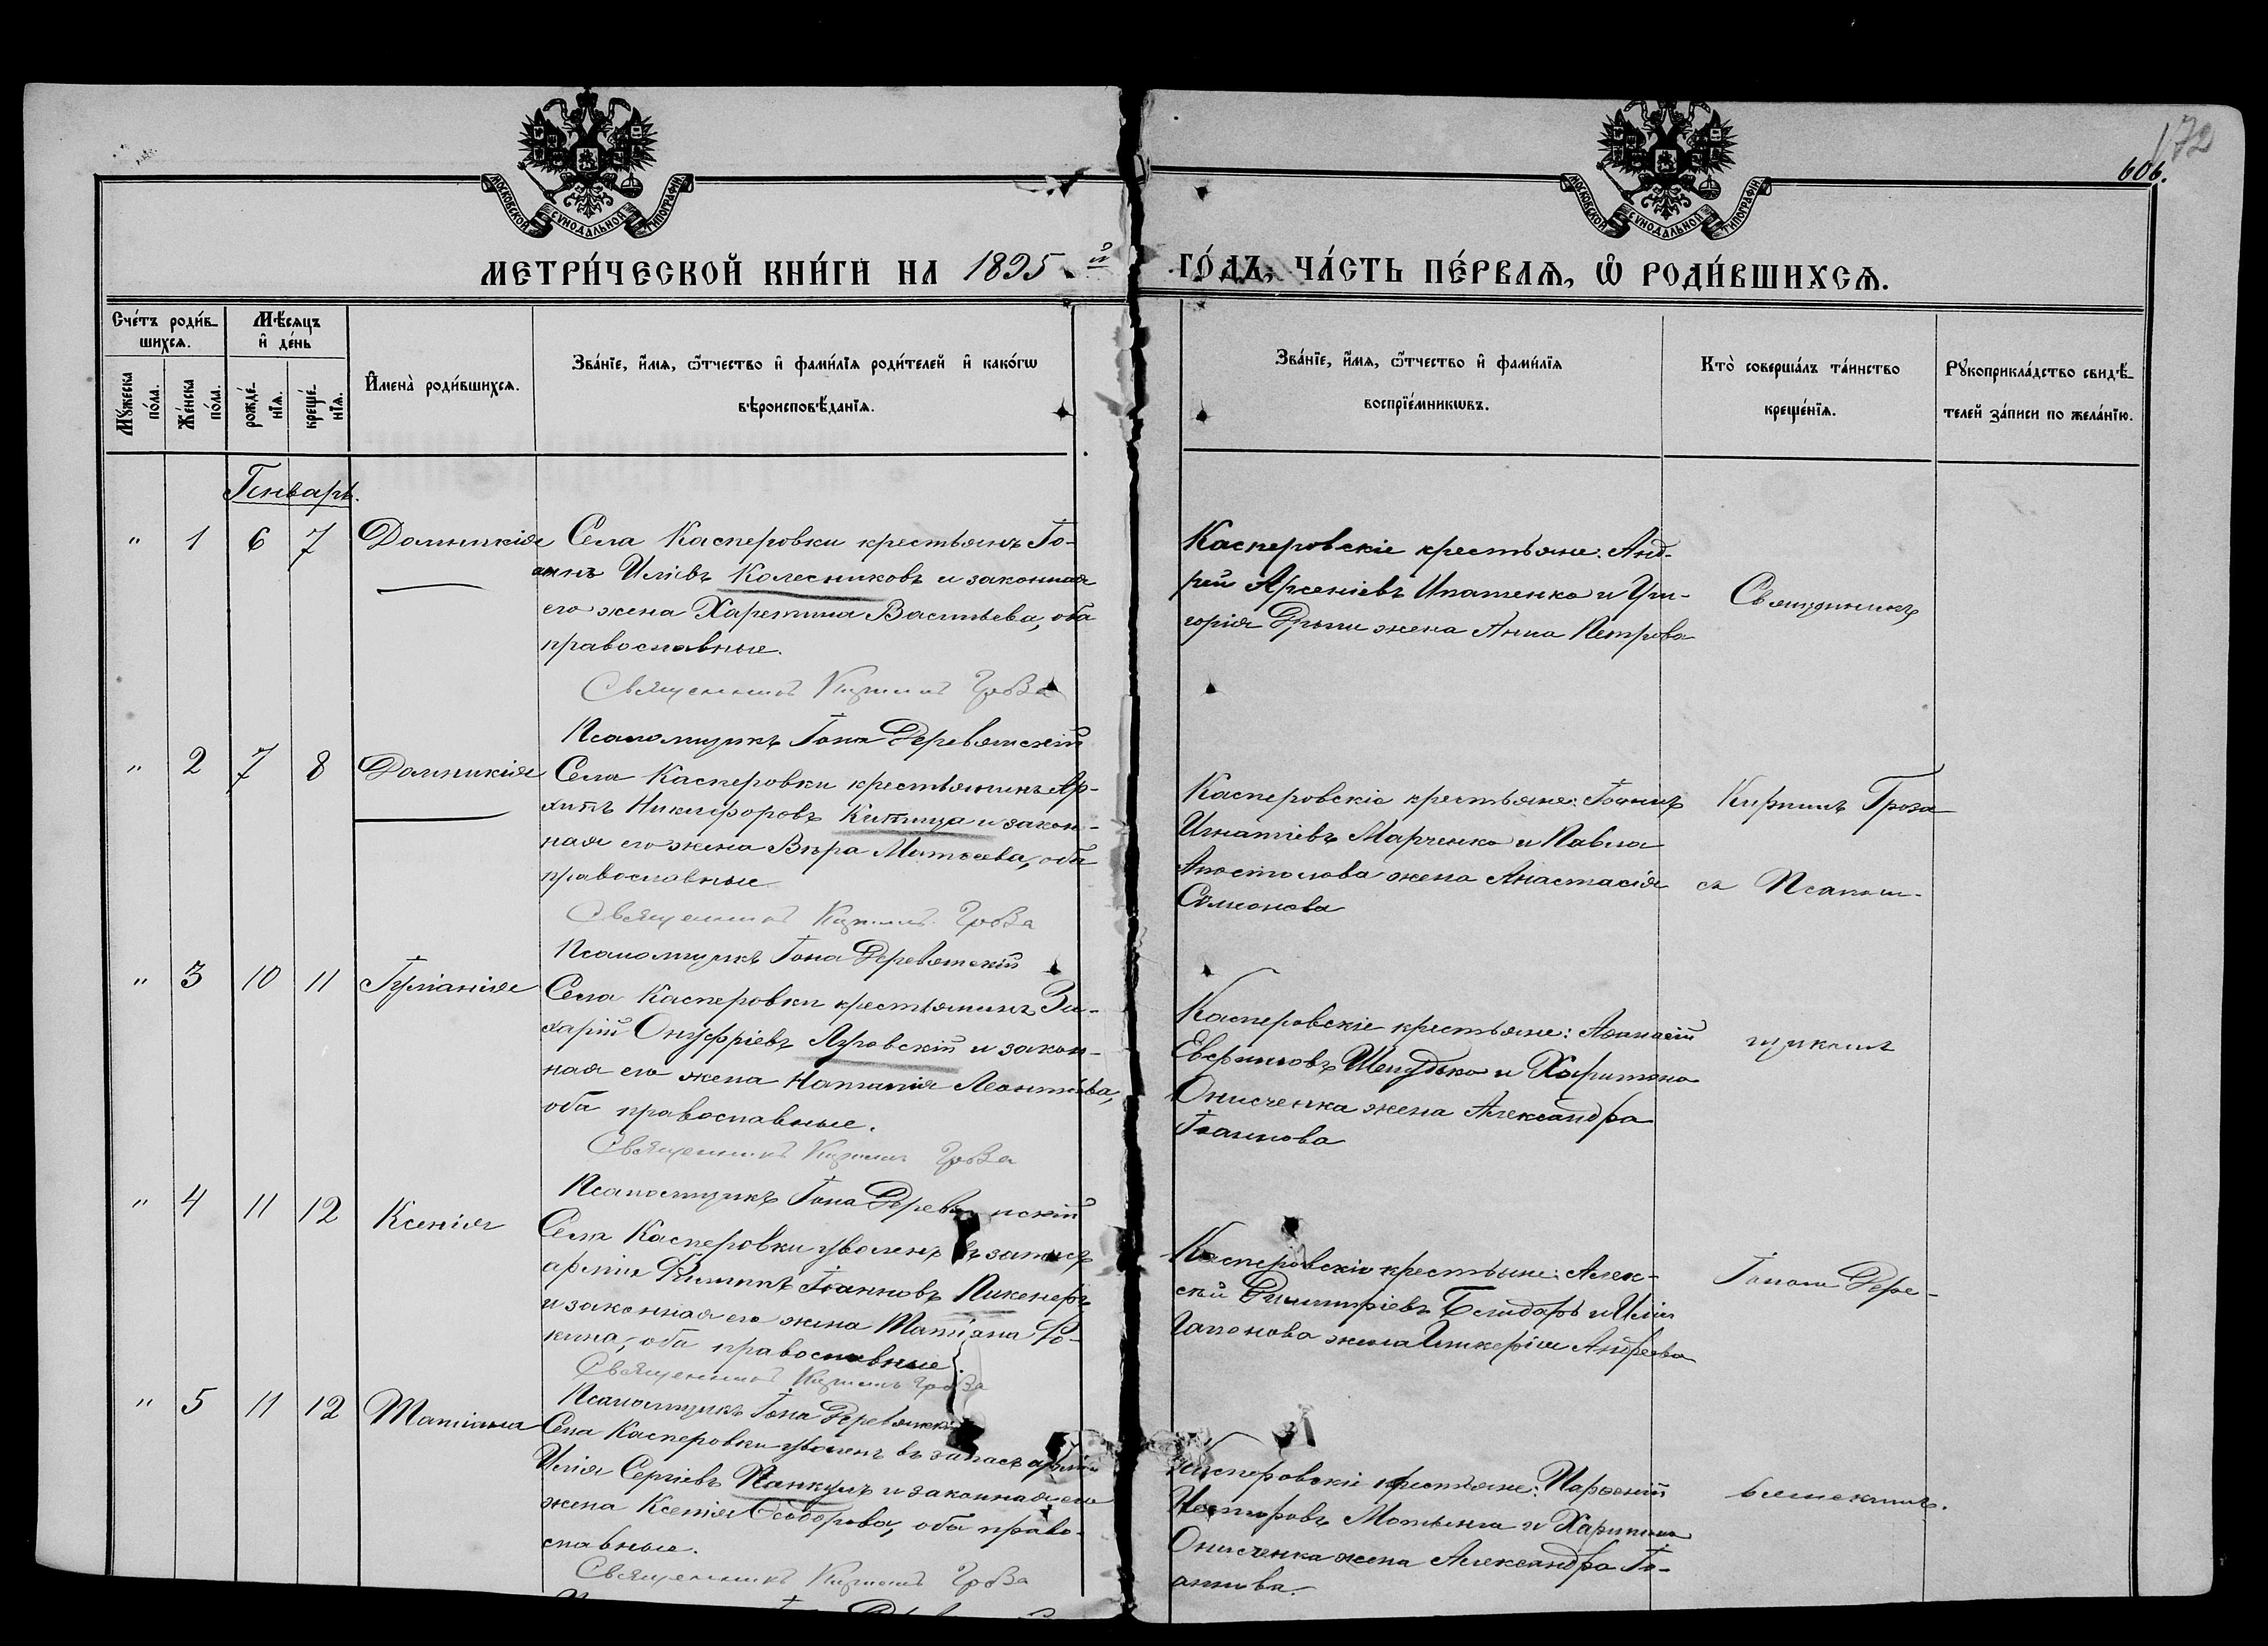 172
606.
МОСКОВСКОЙ СУНОДАЛЬНОЙ ТИПОГРАФІИ
МОСКОВСКОЙ СУНОДАЛЬНОЙ ТИПОГРАФІИ
МЕТРИ́ЧЕСКОЙ КНИ́ГИ НА 1895 й ГО́ДЪ, ЧА́СТЬ ПЕ́РВАѦ, Ѡ҆ РОДИ́ВШИХСѦ.
Сче́тъ роди́в-
шихсѧ.
Мꙋ́жеска по́ла.
Же́нска по́ла.
Мѣ́сѧцъ
и҆ де́нь
рожде́-
нїѧ.
креще́-
нїѧ.
И҆мена̀ роди́вшихсѧ.
Зва́нїе, и҆́мѧ, ѻ҆́тчество и҆ фами́лїѧ роди́телей и҆ како́гѡ
вѣроисповѣ́данїѧ.
Зва́нїе, и҆́мѧ, ѻ҆́тчество и҆ фами́лїѧ
воспрїе́мникѡвъ.
Кто̀ соверша́лъ та́инство
креще́нїѧ.
Рꙋкоприкла́дство свидѣ́-
телей за́писи по жела́нїю.
Генварь.
" 1 6 7 Домникія
Села Касперовки крестьянъ Іо-
аннъ Иліевъ Колесниковъ и законная
его жена Харетина Васильева, оба
православные.
Священникъ Кириллъ Гроза
Псаломщикъ Іона Деревянскій
Касперовскіе крестьяне: Анд-
рей Арсеніевъ Ипатенко и Гри-
горія жена Анна Петрова
Священникъ
" 2 7 8 Домникія
Села Касперовки крестьянинъ Ар-
хипъ Никифоровъ Китица и закон-
ная его жена Вѣра Матѳеева, оба
православные
Священникъ Кириллъ Гроза
Псаломщикъ Іона Деревянскій
Касперовскіе крестьяне: Іоаннъ
Игнатіевъ Марченко и Павла
Апостолова жена Анастасія
Симеонова
Кириллъ Гроза
съ Псалом-
" 3 10 11 Іуліанія
Села Касперовки крестьянинъ За-
харій Онуфріевъ Яровскій и закон-
ная его жена Наталія Леонтьева,
оба православные.
Священникъ Кириллъ Гроза
Псаломщикъ Іона Деревянскій
Касперовскіе крестьяне: Аѳанасій
Шендько и Харитона
Онисченка жена Александра
Іоаннова
щикомъ
" 4 11 12 Ксенія
Села Касперовки уволенъ въ запасъ
арміи Филиппъ Іоанновъ Пикенеръ
и законная его жена Татіана Фо-
кина, оба православные.
Священникъ Кириллъ Гроза
Псаломщикъ Іона Деревянскій
Касперовскіе крестьяне: Алек-
сѣй Димитріевъ и Иліи
Гапонова жена Гликерія Андреева
Іоною Дере-
" 5 11 12 Татіана
Села Касперовки уволенъ въ запасъ арміи
Илія Сергіевъ Панкулъ и законная его
жена Ксенія Ѳеодорова, оба право-
славные.
Священникъ Кириллъ Гроза
Касперовскіе крестьяне: Парѳеній
Несторовъ и Харитона
Онисченка жена Александра Іо-
аннова.
вянскимъ.